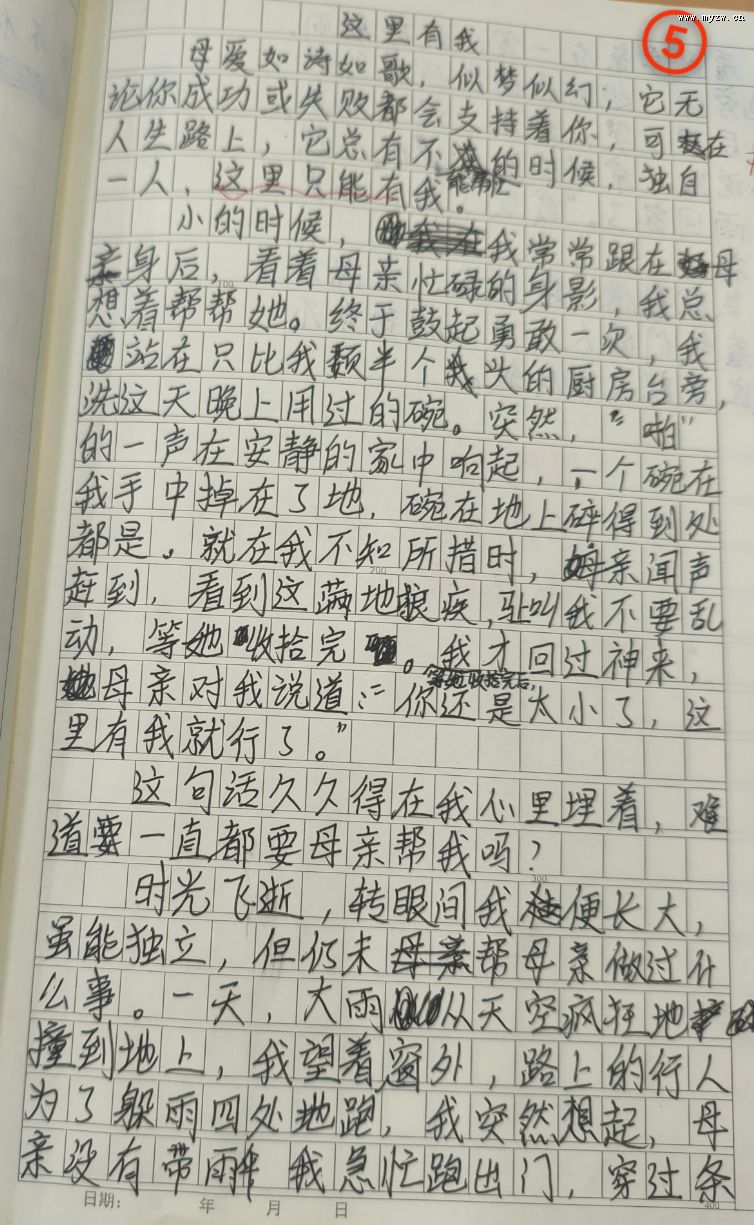 www.myzw.cn
5
这里有我
母爱如诗如歌，似梦似幻，它无
论你成功或失败都会支持着你，可在
人生路上，它总有不能帮你的时候，独自
一人，这里只能有我。
小的时候，我常常跟在母
亲身后，看着母亲忙碌的身影，我总
想着帮帮她。终于鼓起勇敢一次，我
站在只比我颗半个头的厨房台旁，
洗这天晚上用过的碗。突然，“啪”
的一声在安静的家中响起，一个碗在
我手中掉在了地，碗在地上碎得到处
都是。就在我不知所措时，母亲闻声
赶到，看到这满地狼疾，让叫我不要乱
动，等她收拾完。我才回过神来，
等她收拾完后，
母亲对我说道：“你还是太小了，这
里有我就行了。”
这句话久久得在我心里埋着，难
道要一直都要母亲帮我吗？
时光飞逝，转眼间我便长大，
虽能独立，但仍未帮母亲做过什
么事。一天，大雨从天空疯狂地
撞到地上，我望着窗外，路上的行人
为了躲雨四处地跑，我突然想起，母
亲没有带雨伞 我急忙跑出门，穿过条
日期： 年 月 日
100
200
300
400